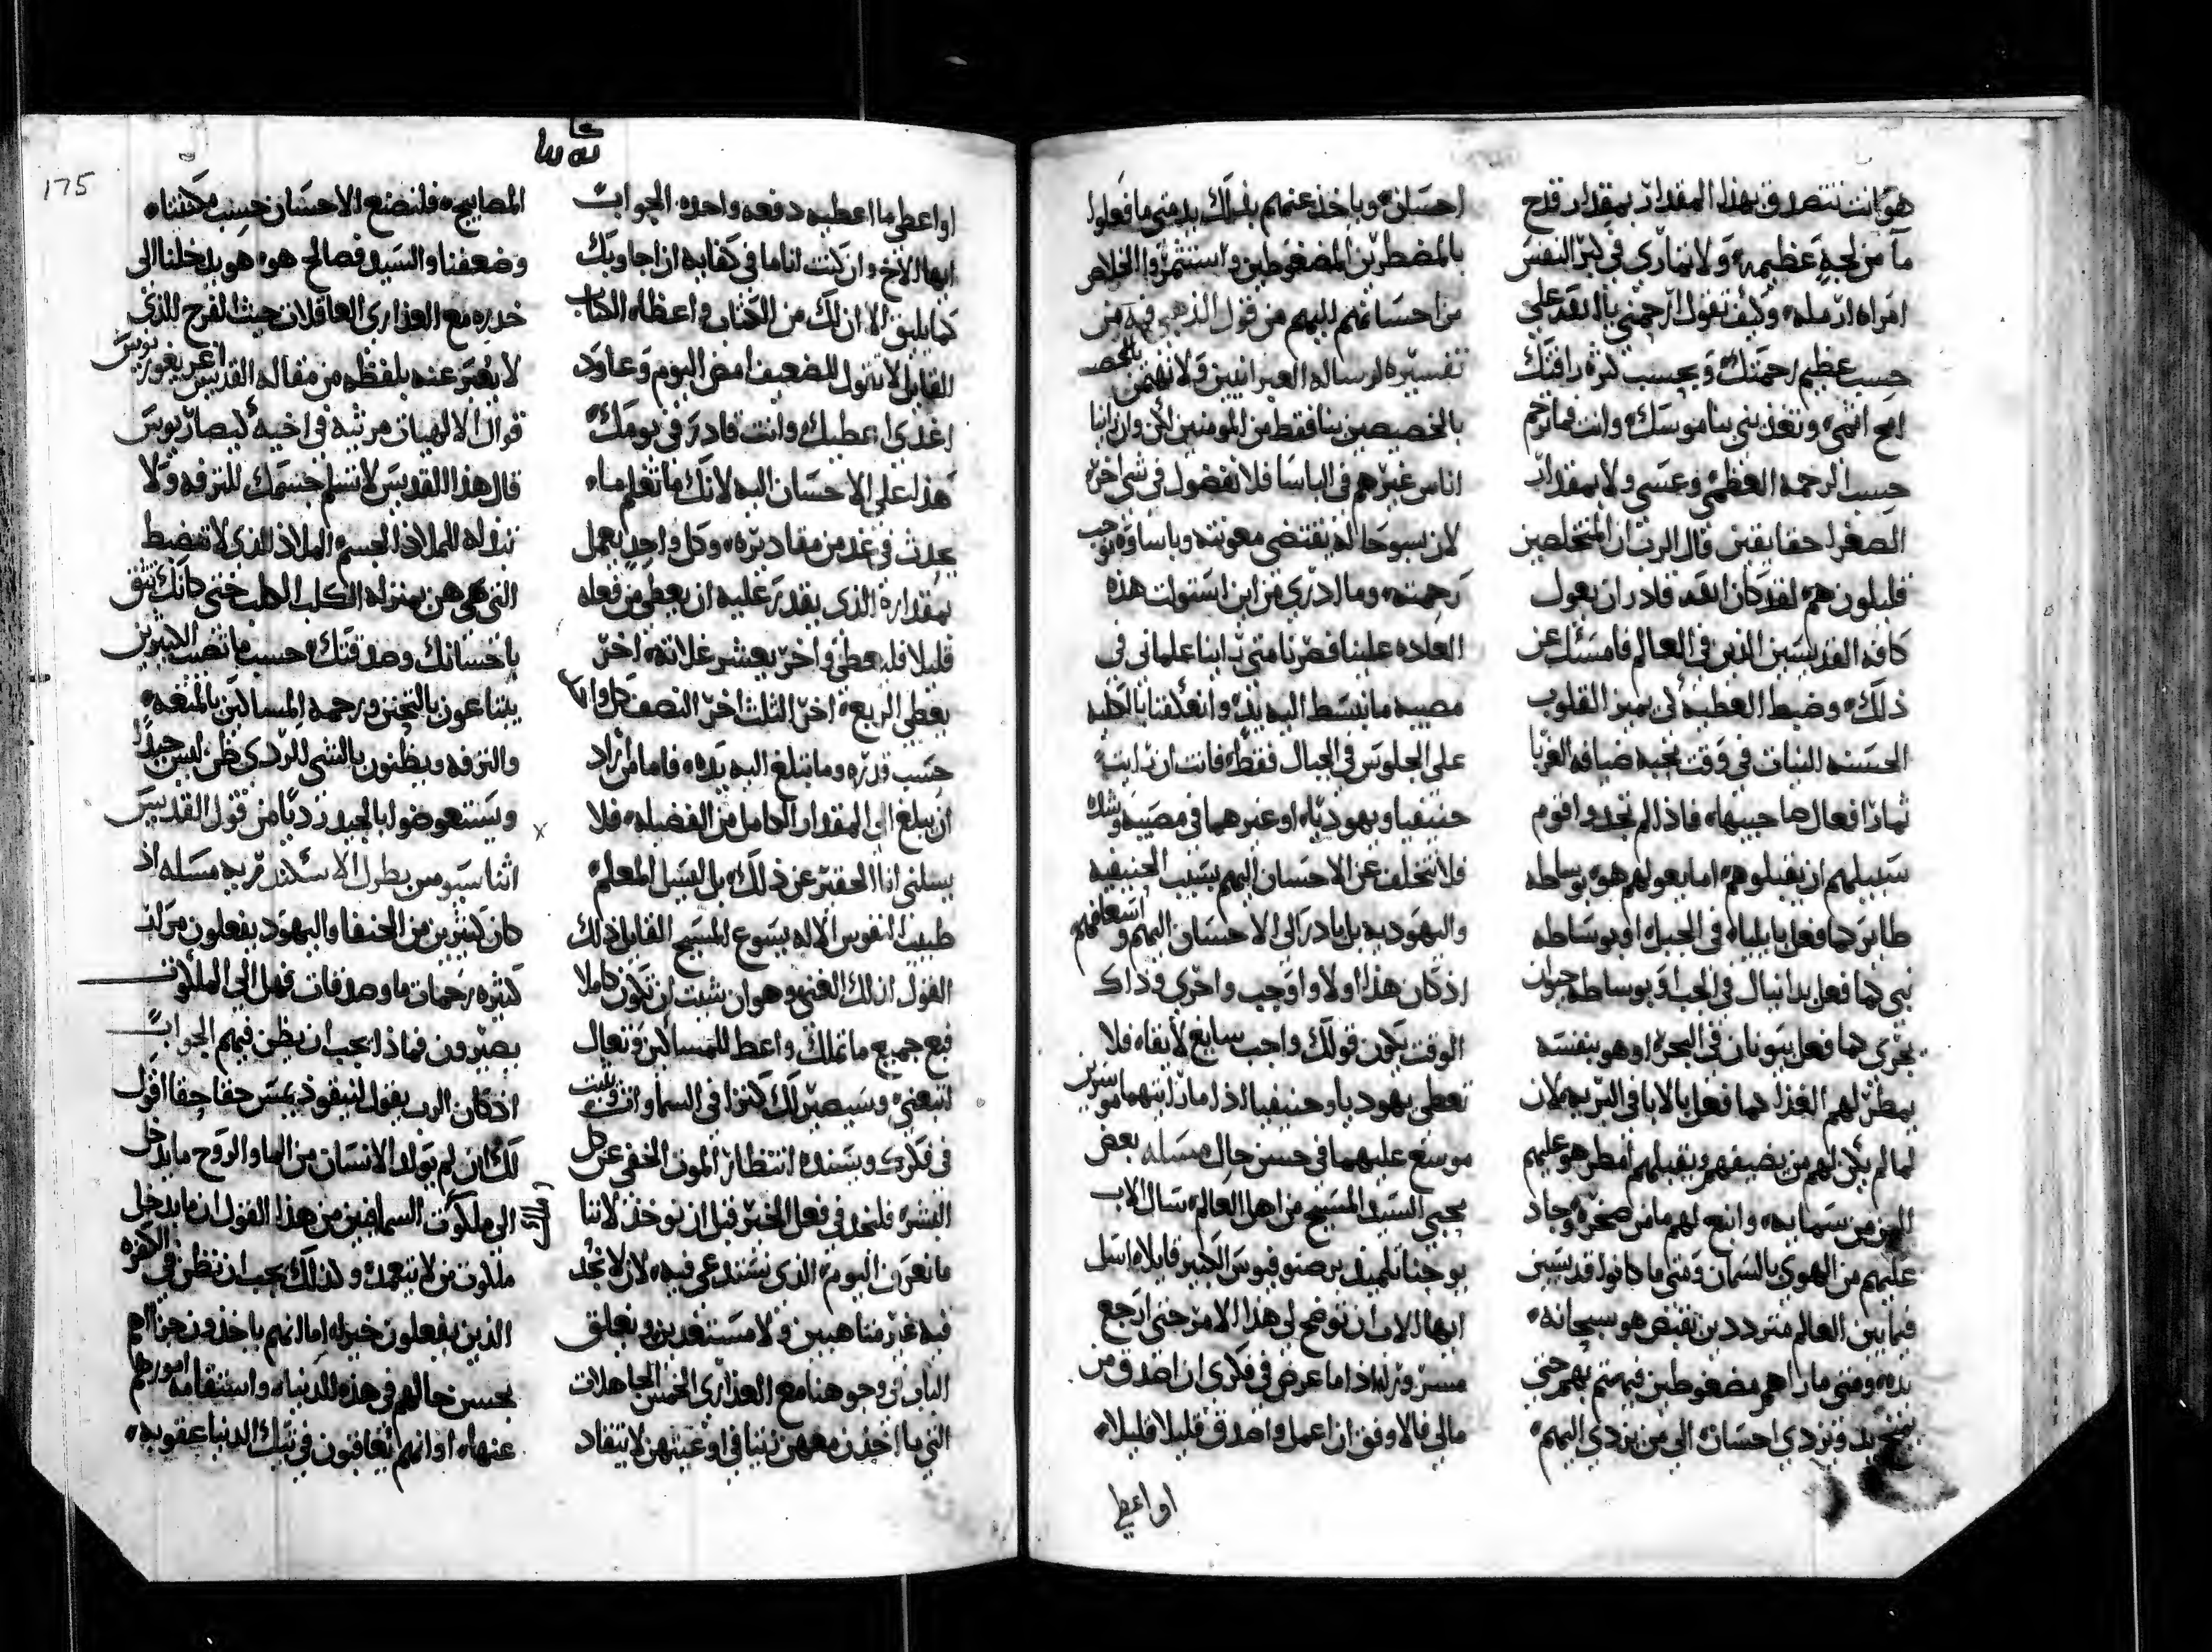 هو انت تتصدق بهذا المقدار بمقدار قدح
ما من لجة عظيمه ولا تماري في كبر النفس
امراه ارمله وكيف تقول ارحمني يا الله علي
حسب عظيم رحمتك وبحسب كثرة رافتك
امح اثمي وانت فما ترحم
حسب الرحمه العظمي وعسي ولا بمقدار
الصغرا حقا يقين قال الرب ان المتخلصين
قليلون هم لقد كان الله قادر ان يعول
كافه القديسين الذين في العالم فامسك عن
ذلك وضبط العطيه لكي يميز القلوب
الحسنه النيات في وقت محبه ضيافه الغربا
ثمار افعال صاحبيها فاذا لم تجدوا قوم
سبيلهم ان يقبلوهم اما يعولهم هو بوساطه
طاير كما فعل بايلياه في الجبل او بوساطه
نبي كما فعل بدانيال في الجب او بوساطه حيوان
بحري كما فعل بيونان في البحر او هو بنفسه
يمطر لهم الغذا كما فعل بالابا في البريه لان
لما لم يكن لهم من يضيفهم ويقبلهم امطر هو عليهم
المن من سمايه وانبع لهم ما من صخره وجاد
عليهم من الهوي بالسمان ومتي ما كانوا قديسين
فيما بين العالم مترددين نقبض هو سبحانه
يده ومتي ما راهم مضغوطين فيهتم بهم حتي
يد وتردي احسان الي من يردي اليهم
احسان وياخذ عنهم بذلك بدمتي ما فعلوا
بالمضطرين المضغوطين واستثمروا الخلاص
من احسانهم اليهم من قول الذهبي فيه من
تفسيره لرساله العبرانيين ولا نهتمن
بالخصيصين بنا فقط من المومنين لكن وان راينا
اناس غيرهم في الباسا فلا تفضول في شي اخر
لان سو حاله يقتضي معونته وباساوه توجب
رحمته وما ادري من اين استولت هذه
العاده علينا فصرنا متي راينا علماني في
مصيبه ما نبسط اليه يد وانعكفنا بالكليه
علي الجلوس في الجبال فقط فانت ان رايت
حنيفيا ويهوديا او غيرهما في مصيبه وشده
فلا تتخلف عن الاحسان اليهم بسبب الحنيفيه
واليهوديه بل بادر الي الاحسان اليهم واسعافهم
اذ كان هذا اولا واوجب واحري وذاك
الوقت يكون قولك واجب سايغ لايقاه فلا
تعطي يهوديا وحنيفيا اذا ما رايتهما موسرين
موسع عليهما في حسن حال مسله بعض
محبي السيد المسيح من اهل العالم سال الاب
يوحنا تلميذ برصنوفيوس الكبير قايلا اسل
ايها الاب ان توضح لي هذا الامر حتي ارجع
اذا ما عرض في فكري ان اصدق من
مالي فالاوفق ان اعمل واصدق قليلا قليلا
او اعطي
175
او اعطي ما اعطيه دفعه واحده الجواب
ايها الاخ وان كنت انا ما في كفايه ان اجاوبك
كما يليق الا ان لك من الكتاب واعظا الكتاب
القايل لا تقول للضعيف امض اليوم وعاود
اغدي اعطيك وانت قادر في يومك
هذا علي الاحسان اليه لانك ما تعلم ما
يحدث في غد من مقاديره وكل واحد يعمل
بمقداره الذي يقدر عليه ان يعطي من فعله
قليلا قليعطي واخر يعشر غلاته اخر
يعطي الربع اخر الثلث اخر النصف كل واحد
حسب قدره وما تبلغ اليه يده فاما من اراد
ان يبلغ الي المقدار الكامل من الفضيله فلا
يسلني انا الحقير عن ذلك بل ليسل المعلم
طبيب النفوس الاله يسوع المسيح القايل ذلك
القول لذلك الغني وهو ان شيت ان تكون كاملا
فبع جميع ما تملك واعط للمساكين وتعال
اتبعني وسيصير لك كنزا في السما وانت وثبت
في فكرك وبسنده انتظار الموت الخفي عن كل
البشر فلنجد في فعل الخير قبل ان نوخذ لاننا
ما نعرف اليوم الذي نستدعي فيه لان لا نجد
فيه غير متاهبين ولا مستعدين ويغلق
الباب في وجوهنا مع العذاري الخمس الجاهلات
التي ما اخذن معهن زيتا في اوعيتهن لايقاد
المصابيح فلنصنع الاحسان حسب مكنتنا
وضعفنا والسيد فصالح هو هو يدخلنا الي
خدره مع العذاري العاقلات حيث الفرح الذي
لا يعبر عنه بلفظه من مقاله القديس اغريغوريوس
قوال الالهيات مرثيه في اخيه كيصاريوس
قال هذا القديس لا تسلم جسمك للترفه ولا
تبذله للملاذ الجسم الملاذ الذي لا تضبط
التي هي من منزله الكلب الكلب حتي كانك تثق
باحسانك وصدقتك حسب ما تصيب الكثيرين
يبتاعون بالتحنن ورحمه المساكين بالمتعه
والترفه ويظنون بالشي الردي ظن ليس جيدا
ويستعوضوا بالجيد رديا من قول القديس
اثناسيوس بطرك الاسكندريه مسله اذ
كان كثيرين من الحنفا واليهود يفعلون مرات
كثيره رحمات ما وصدقات فهل الي الملكوت
يصيرون فماذا يجب ان يظن فيهم الجواب
اذ كان الرب يقول لنيقوديمس حقا حقا اقول
لك ان لم يولد الانسان من الما والروح ما يدخل
الي ملكوت السما فيبين من هذا القول ان ما يدخل
ملكوت من لا يتعمد وكذلك يجب ان تظن في الكفره
الذين يفعلون خيرا اما انهم ياخذون جزاهم
بحسن حالهم في هذه الدنيا واستقامه امورهم
عنها او انهم يعاقبون في تلك الدنيا عقوبه